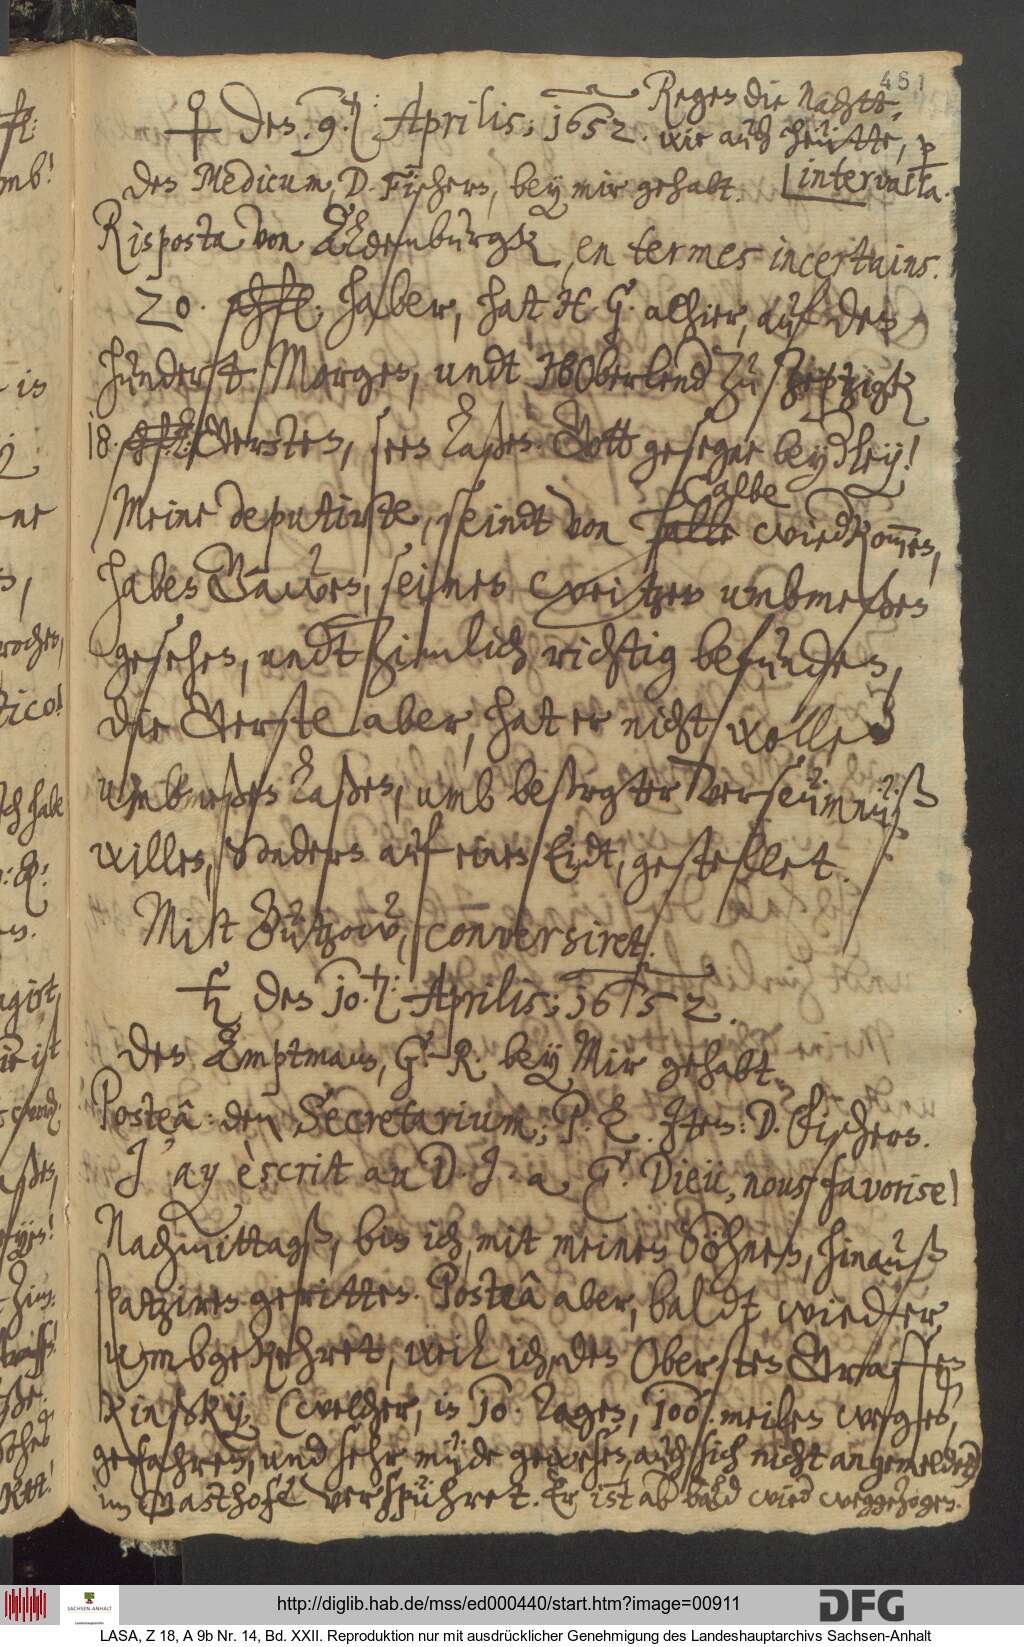 481
♀ den 9.ten: Aprilis; 1652. Regen die Nachtt,
wie auch heütte, p
intervalla.
den Medicum, D. Fischern, bey mir gehabt.
Risposta von Altemburgk, en termes incertains.
20. schfl: haber, hat H. G. alhier, auf den
hundert Morgen, undt IhOberLend zu Zeptzigk
18. schfl: Gersten, seen laßen. Gott gesegne beyderley!
Meine deputirte, seindt von Calbe wiedkommen,
haben seinen Weitzen umbmeßen
gesehen, undt zimlich richtig befunden,
die Gerste aber, hat er nicht wollen
umbmeßen laßen, umb besorgter Verseümnüß
willen, sondern auf einen Eidt, gestellet.
Mit Bützow, conversiret.
♄ den 10.ten: Aprilis; 1652.
Den Amptmann, G. R. bey Mir gehabt.
Posteâ: den Secretarium, P. L. Item: D. Fischern.
J'ay èscrit au D. J. a G. Dieü, nous favorise!
Nachmittagß, bin ich, mit meinen Söhnen, hinauß
spatziren geritten. Posteâ aber, baldt wieder
umbgekehret, weil ich, den Obersten Graffen
Kinsky, (welcher, in 10. Tagen, 100. meilen weges,
gefahren, und sehr müde gewesen, auch sich nicht angemeldet)
im Gasthofe verspühret. Er ist ab baldt wied weggezogen.
http://diglib.hab.de/mss/ed000440/start.htm?image=00911
DFG
SACHSEN-ANHALT
LASA, Z 18, A 9b Nr. 14, Bd. XXII. Reproduktion nur mit ausdrücklicher Genehmigung des Landeshauptarchivs Sachsen-Anhalt